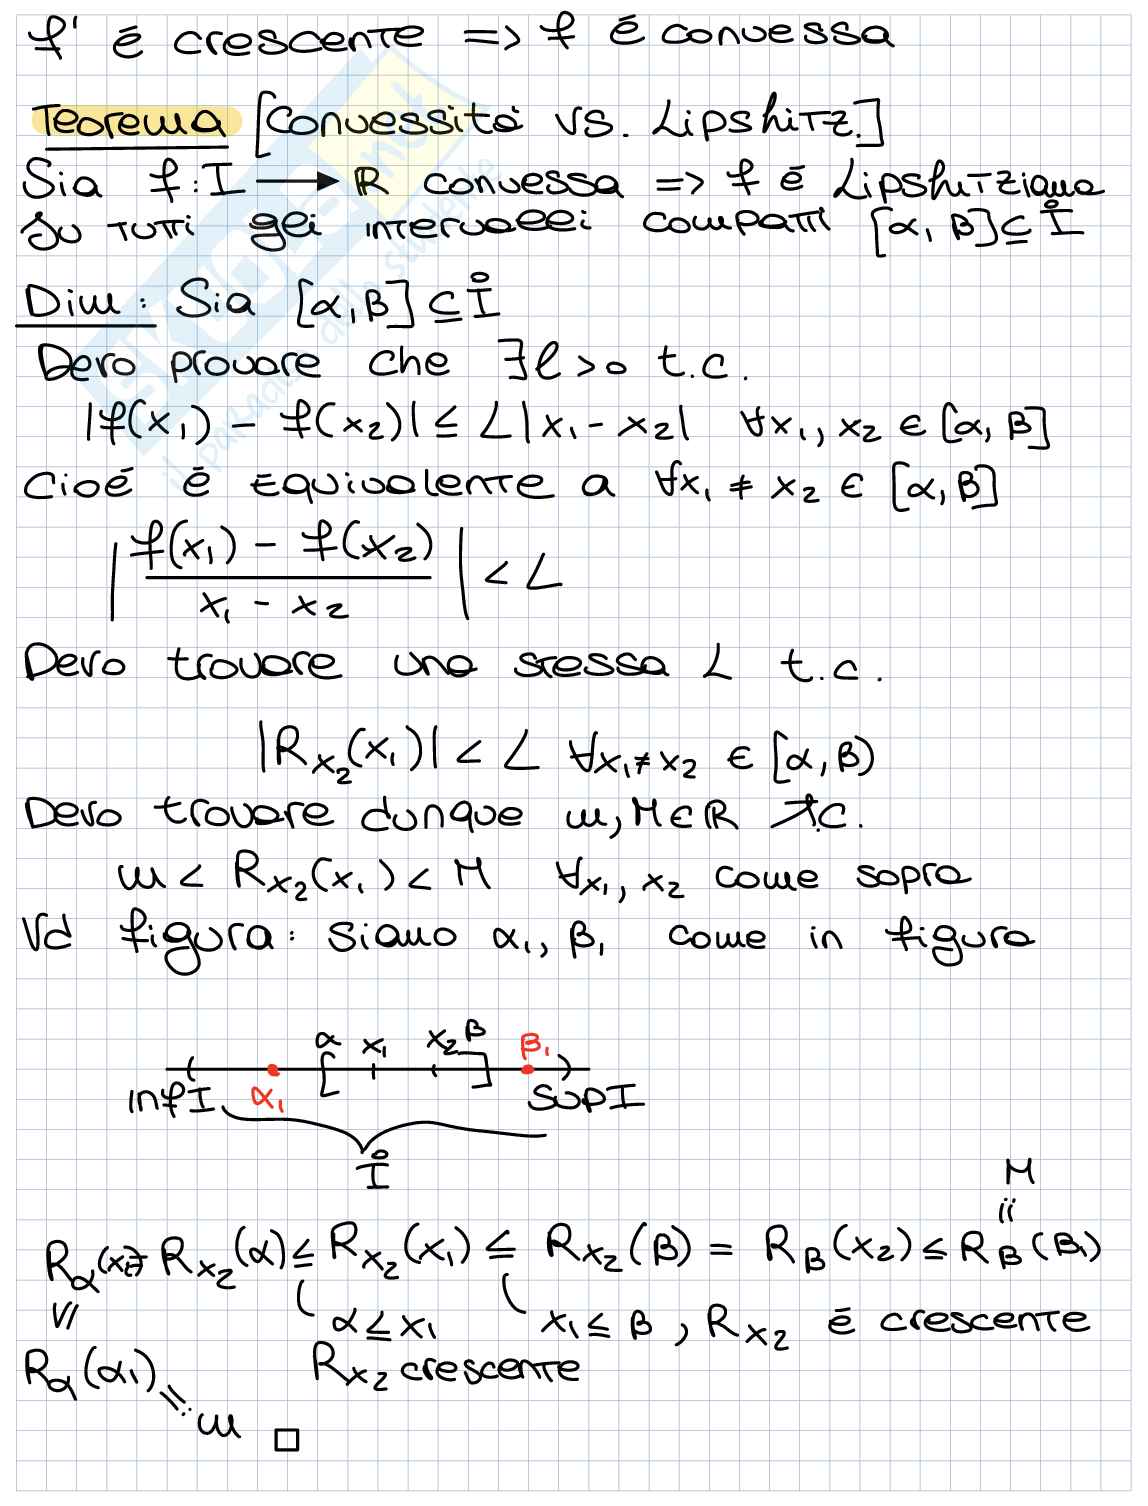 f' é crescente => f é convessa
Teorema [Convessità vs. Lipshitz.]
Sia f: I ⟶ ℝ convessa => f é Lipshitziana
su tutti gli intervalli compatti [α, β] ⊆ I̊
Dim: Sia [α, β] ⊆ I̊
Devo provare che ∃ℓ>0 t.c.
|f(x₁) - f(x₂)| ≤ L|x₁ - x₂| ∀x₁, x₂ ∈ [α, β]
Cioé é equivalente a ∀x₁ ≠ x₂ ∈ [α, β]
|(f(x₁) - f(x₂))/(x₁ - x₂)| < L
Devo trovare una stessa L t.c.
|R_x₂(x₁)| < L ∀x₁≠x₂ ∈ [α, β)
Devo trovare dunque m, M ∈ ℝ t.c.
m < R_x₂(x₁) < M ∀x₁, x₂ come sopra
Vd figura: siano α₁, β₁ come in figura
α x₁ x₂ β β₁
inf I α₁ sup I
I̊
M
=
R_α(x₂) = R_x₂(α) ≤ R_x₂(x₁) ≤ R_x₂(β) = R_β(x₂) ≤ R_β(β₁)
≤ α ≤ x₁ x₁ ≤ β, R_x₂ é crescente
R_α(α₁) R_x₂ crescente
=: m □